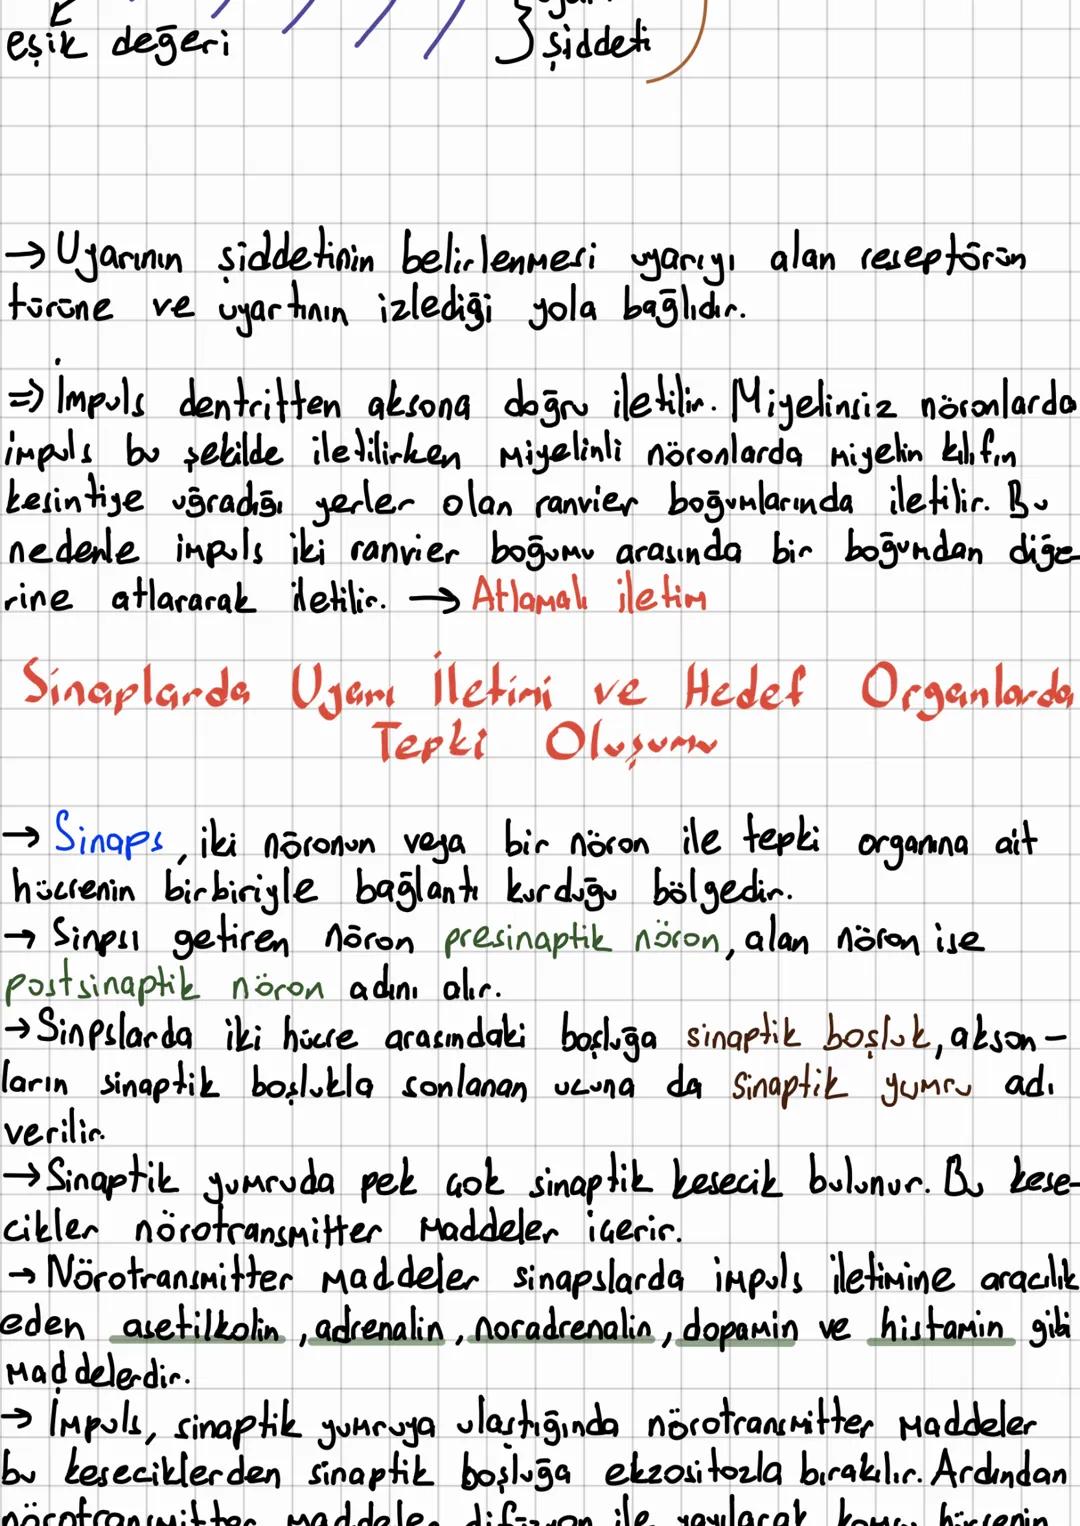 eşik değeri
şiddeti
→ Uyarının şiddetinin belirlenmesi uyarıyı alan reseptörün
türüne ve uyartının izlediği yola bağlıdır.
=> İmpuls dentritten aksona doğru iletilir. Miyelinsiz nöronlarda
impuls bu şekilde iletilirken miyelinli nöronlarda miyelin kılıfın
kesintiye uğradığı yerler olan ranvier boğumlarında iletilir. Bu
nedenle impuls iki ranvier boğumu arasında bir boğumdan diğe
rine atlararak iletilir. → Atlamalı iletim
Sinaplarda Uyarı İletimi ve Hedef Organlarda
Tepki Oluşumu
→ Sinaps, iki nöronun veya bir nöron ile tepki organına ait
hücrenin birbiriyle bağlantı kurduğu bölgedir.
→ Sinpsı getiren nöron presinaptik nöron, alan nöron ise
postsinaptik nöron adını alır.
→ Sinpslarda iki hücre arasındaki boşluğa sinaptik boşluk, akson-
ların sinaptik boşlukla sonlanan ucuna da sinaptik yumru adı
verilir.
→ Sinaptik yumruda pek çok sinaptik kesecik bulunur. Bu kese-
cikler nörotransmitter maddeler içerir.
→ Nörotransmitter maddeler sinapslarda impuls iletimine aracılık
eden asetilkolin, adrenalin, noradrenalin, dopamin ve histamin gibi
maddelerdir.
→ İmpuls, sinaptik yumruya ulaştığında nörotransmitter maddeler
bu keseciklerden sinaptik boşluğa ekzositozla bırakılır. Ardından
nörotransmitter maddeler difüzyon ile yayılarak komşu hücrenin